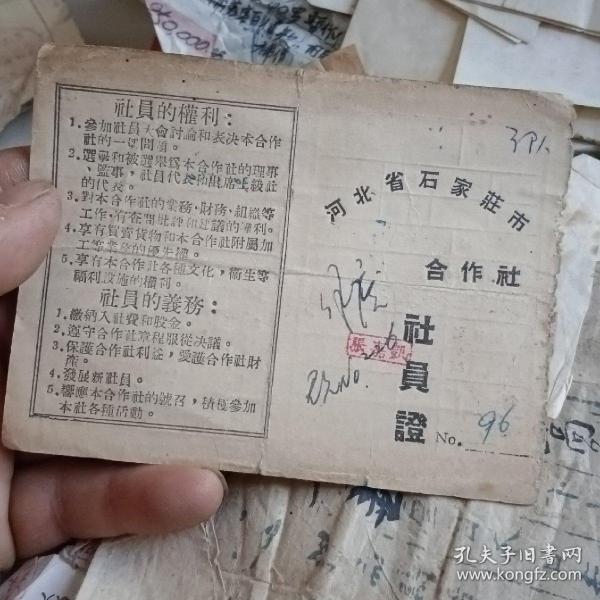 社員的權利：
1．參加社員大會討論和表決本合作
社的一切問題。
2．選舉和被選舉爲本合作社的理事
、監事，社員代表和出席上級社
的代表。
3．對本合作社的業務、財務、組織等
工作，有查問批評和建議的權利。
4．享有買賣貨物和本合作社附屬加
工等業務的優先權。
5．享有本合作社各種文化，衛生等
福利設施的權利。
社員的義務：
1．繳納入社費和股金。
2．遵守合作社章程服從決議。
3．保護合作社利益，愛護合作社財
產。
4．發展新社員。
5．響應本合作社的號召，積極參加
本社各種活動。
河北省石家莊市
合作社
社員證
No. 96
孔夫子旧书网
www.kongfz.com